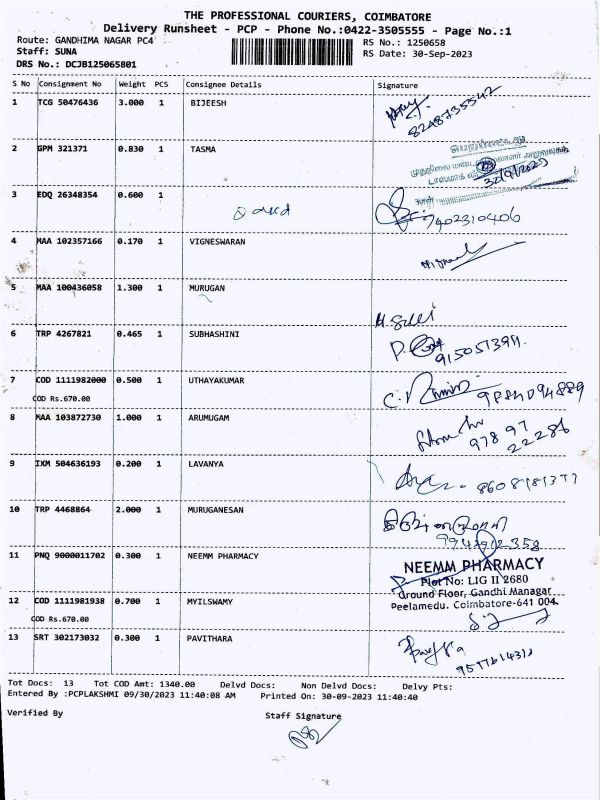 THE PROFESSIONAL COURIERS, COIMBATORE
Delivery Runsheet - PCP - Phone No.:0422-3505555 - Page No.:1
Route: GANDHIMA NAGAR PC4 RS No.: 1250658
Staff: SUNA RS Date: 30-Sep-2023
DRS No.: DCJB125065801
S No Consignment No Weight PCS Consignee Details Signature
1 TCG 50476436 3.000 1 BIJEESH
8248735542
2 GPM 321371 0.830 1 TASMA
3 EDQ 26348354 0.600 1
7402310406
4 MAA 102357166 0.170 1 VIGNESWARAN
5 MAA 100436058 1.300 1 MURUGAN
6 TRP 4267821 0.465 1 SUBHASHINI
9150513911
7 COD 1111982000 0.500 1 UTHAYAKUMAR
COD Rs.670.00
8 MAA 103872730 1.000 1 ARUMUGAM
978 97
22286
9 IXM 504636193 0.200 1 LAVANYA
10 TRP 4468864 2.000 1 MURUGANESAN
11 PNQ 9000011702 0.300 1 NEEMM PHARMACY
NEEMM PHARMACY
Plot No: LIG II 2680
Ground Floor, Gandhi Managar
Peelamedu. Coimbatore-641 004.
12 COD 1111981938 0.700 1 MYILSWAMY
COD Rs.670.00
13 SRT 302173032 0.300 1 PAVITHARA
Tot Docs: 13 Tot COD Amt: 1340.00 Delvd Docs: Non Delvd Docs: Delvy Pts:
Entered By :PCPLAKSHMI 09/30/2023 11:40:08 AM Printed On: 30-09-2023 11:40:40
Verified By Staff Signature